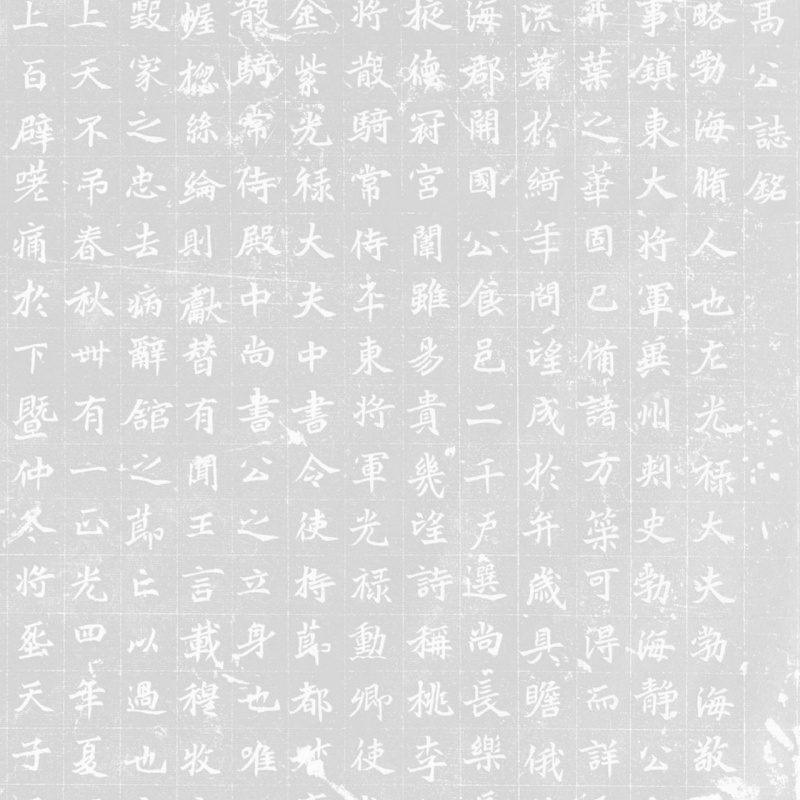 高公誌銘
略勃海脩人也左光祿大夫勃海敬
事鎮東大將軍冀州刺史勃海靜公
弈葉之華固已備諸方策可得而詳
流著於綺年問望成於弁歲具瞻俄
海郡開國公食邑二千戶選尚長樂
掖德冠宮闈雖易貴幾望詩稱桃李
將散騎常侍平東將軍光祿勳卿使
金紫光祿大夫中書令使持節都
散騎常侍殿中尚書公之立身也唯
幄揔絲綸則獻替有聞王言載穆牧
毀家之忠去病辭館之節亡以過也
上天不弔春秋卌有一正光四年夏
上百辟嗟痛於下曁仲冬將葬天子